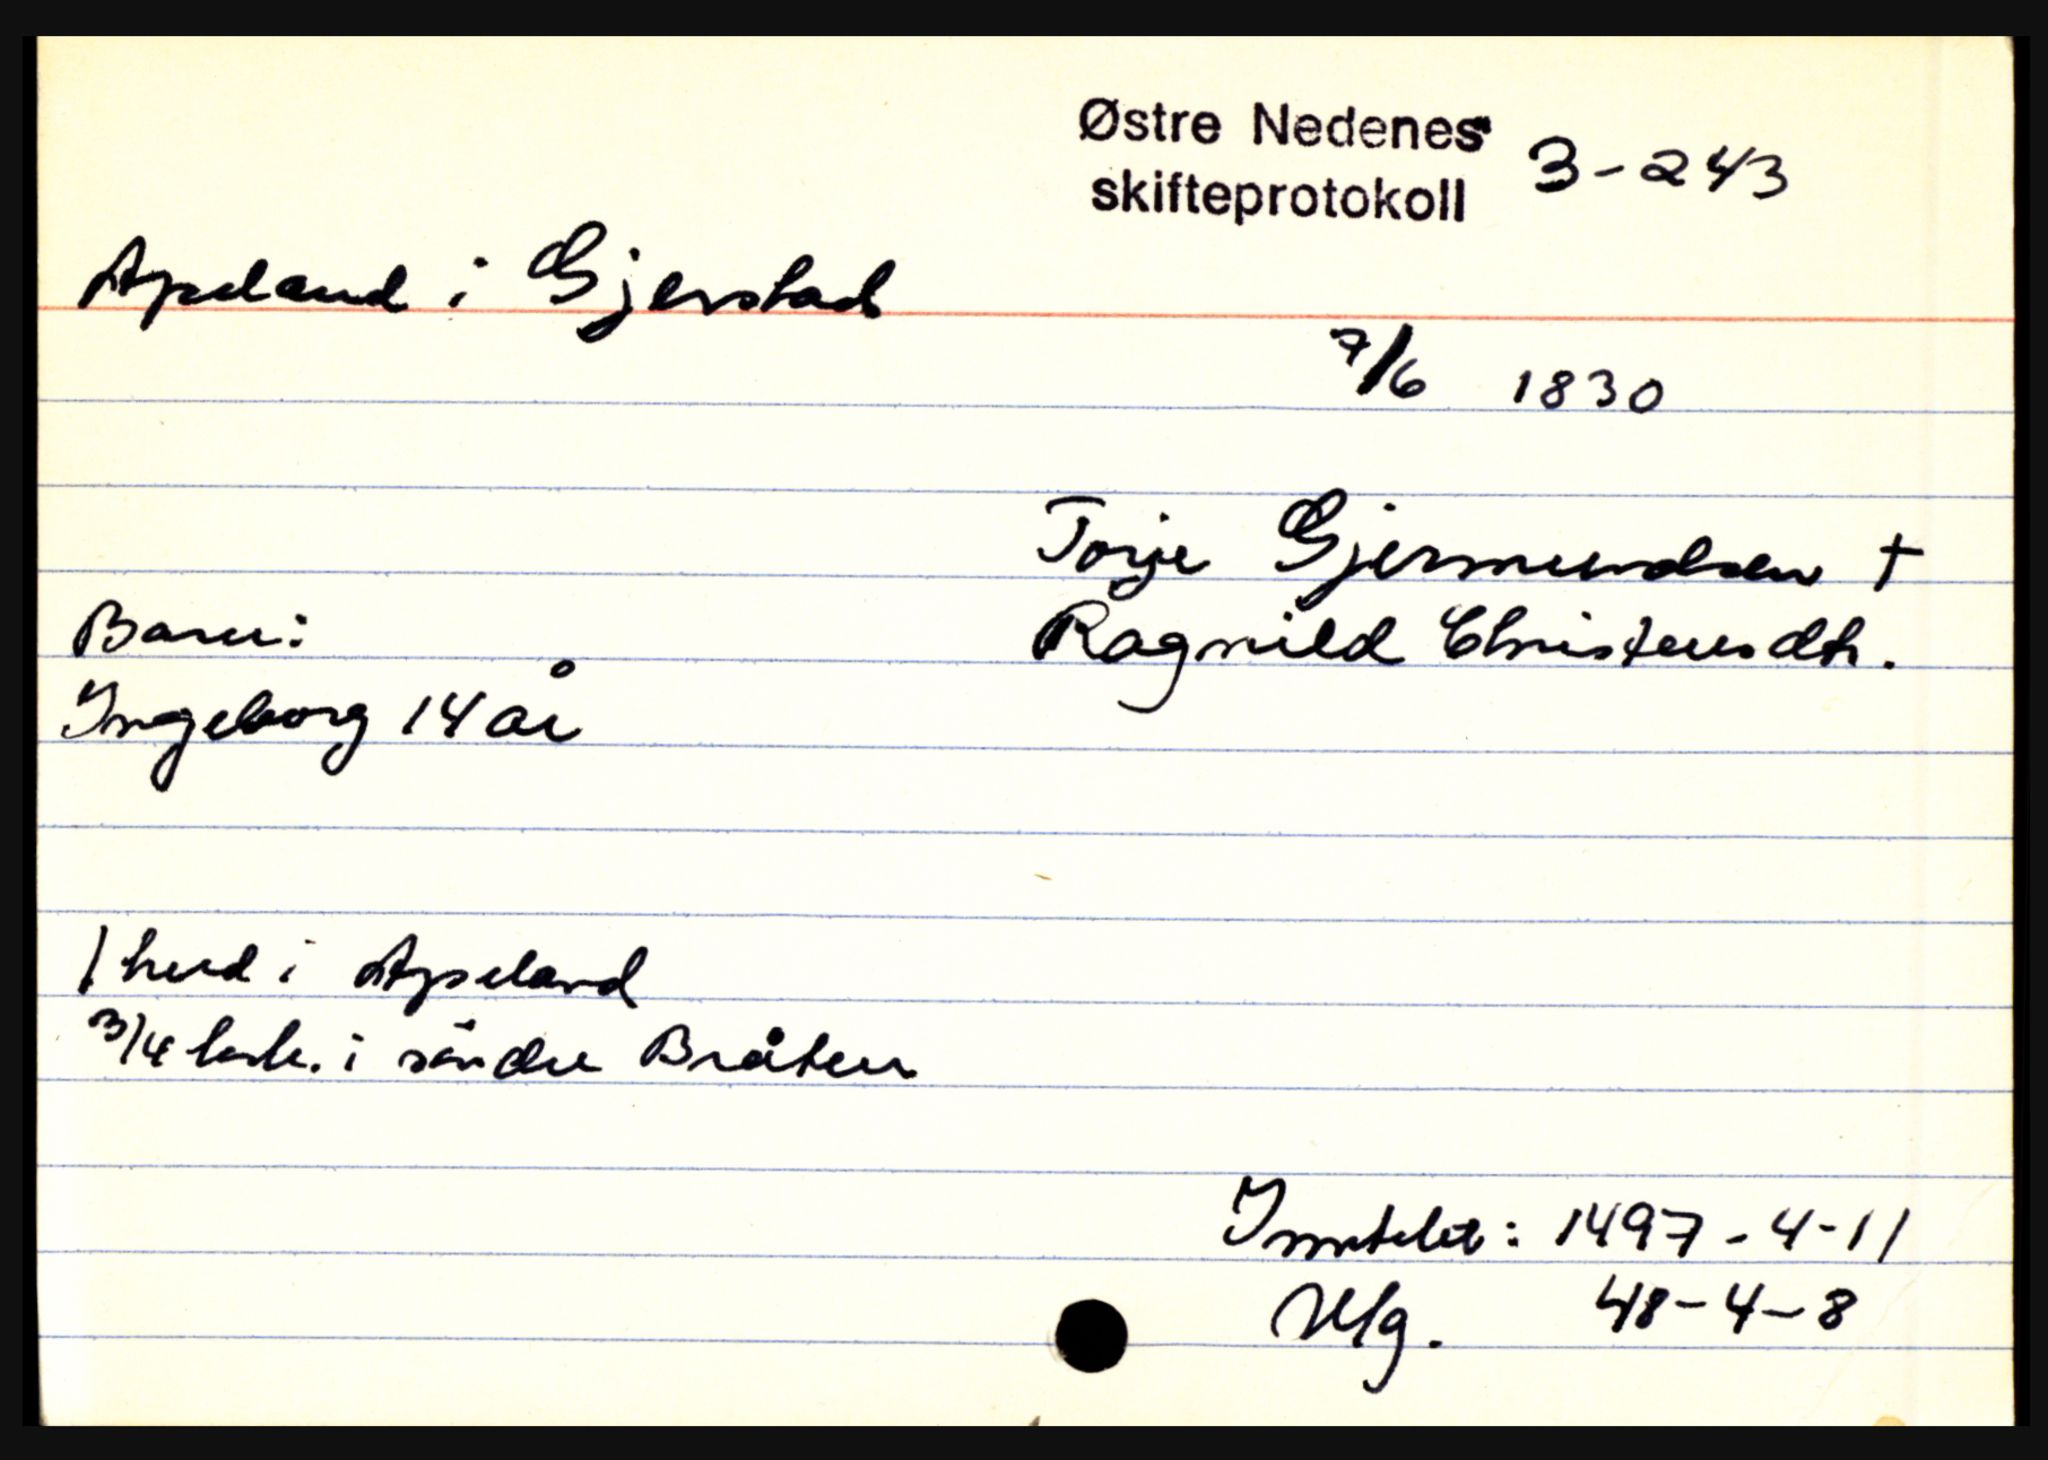 Østre Nedenes 3-243
skifteprotokoll
Apeland i Gjerstad
7/6 1830
Torje Gjermundsen †
Barn:
Ragnild Christensdtr.
Ingeborg 14 år
1 hud i Apeland
3/4 i söndre Bråten
Inntekt: 1497-4-11
Utg. 48-4-8